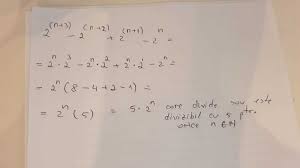 2^(n+3) - 2^(n+2) + 2^(n+1) - 2^n =
= 2^n · 2^3 - 2^n · 2^2 + 2^n · 2^1 - 2^n =
= 2^n (8 - 4 + 2 - 1) =
= 2^n (5) = 5 · 2^n care divide sau este
divizibil cu 5 ptr.
orice n ∈ N